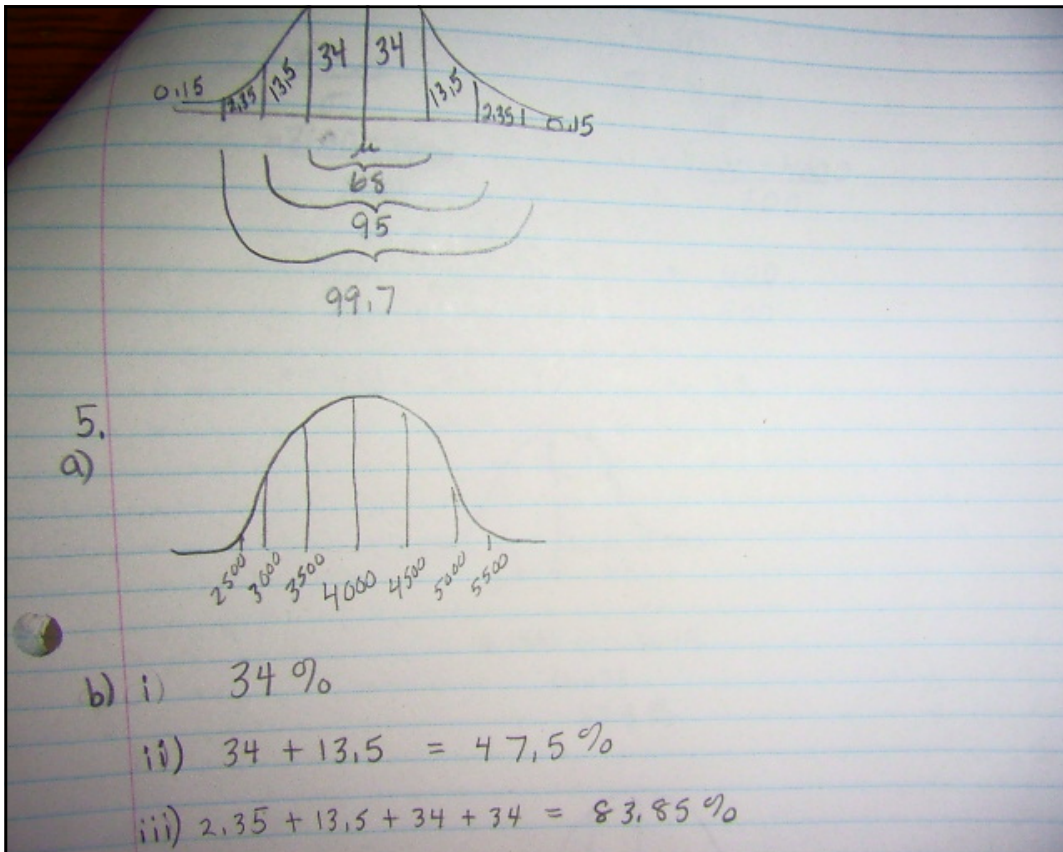 34 34
0.15 2.35 13.5 13.5 2.35 0.15
μ
68
95
99.7
5.
a)
2500 3000 3500 4000 4500 5000 5500
b) i) 34 %
ii) 34 + 13.5 = 47.5 %
iii) 2.35 + 13.5 + 34 + 34 = 83.85 %